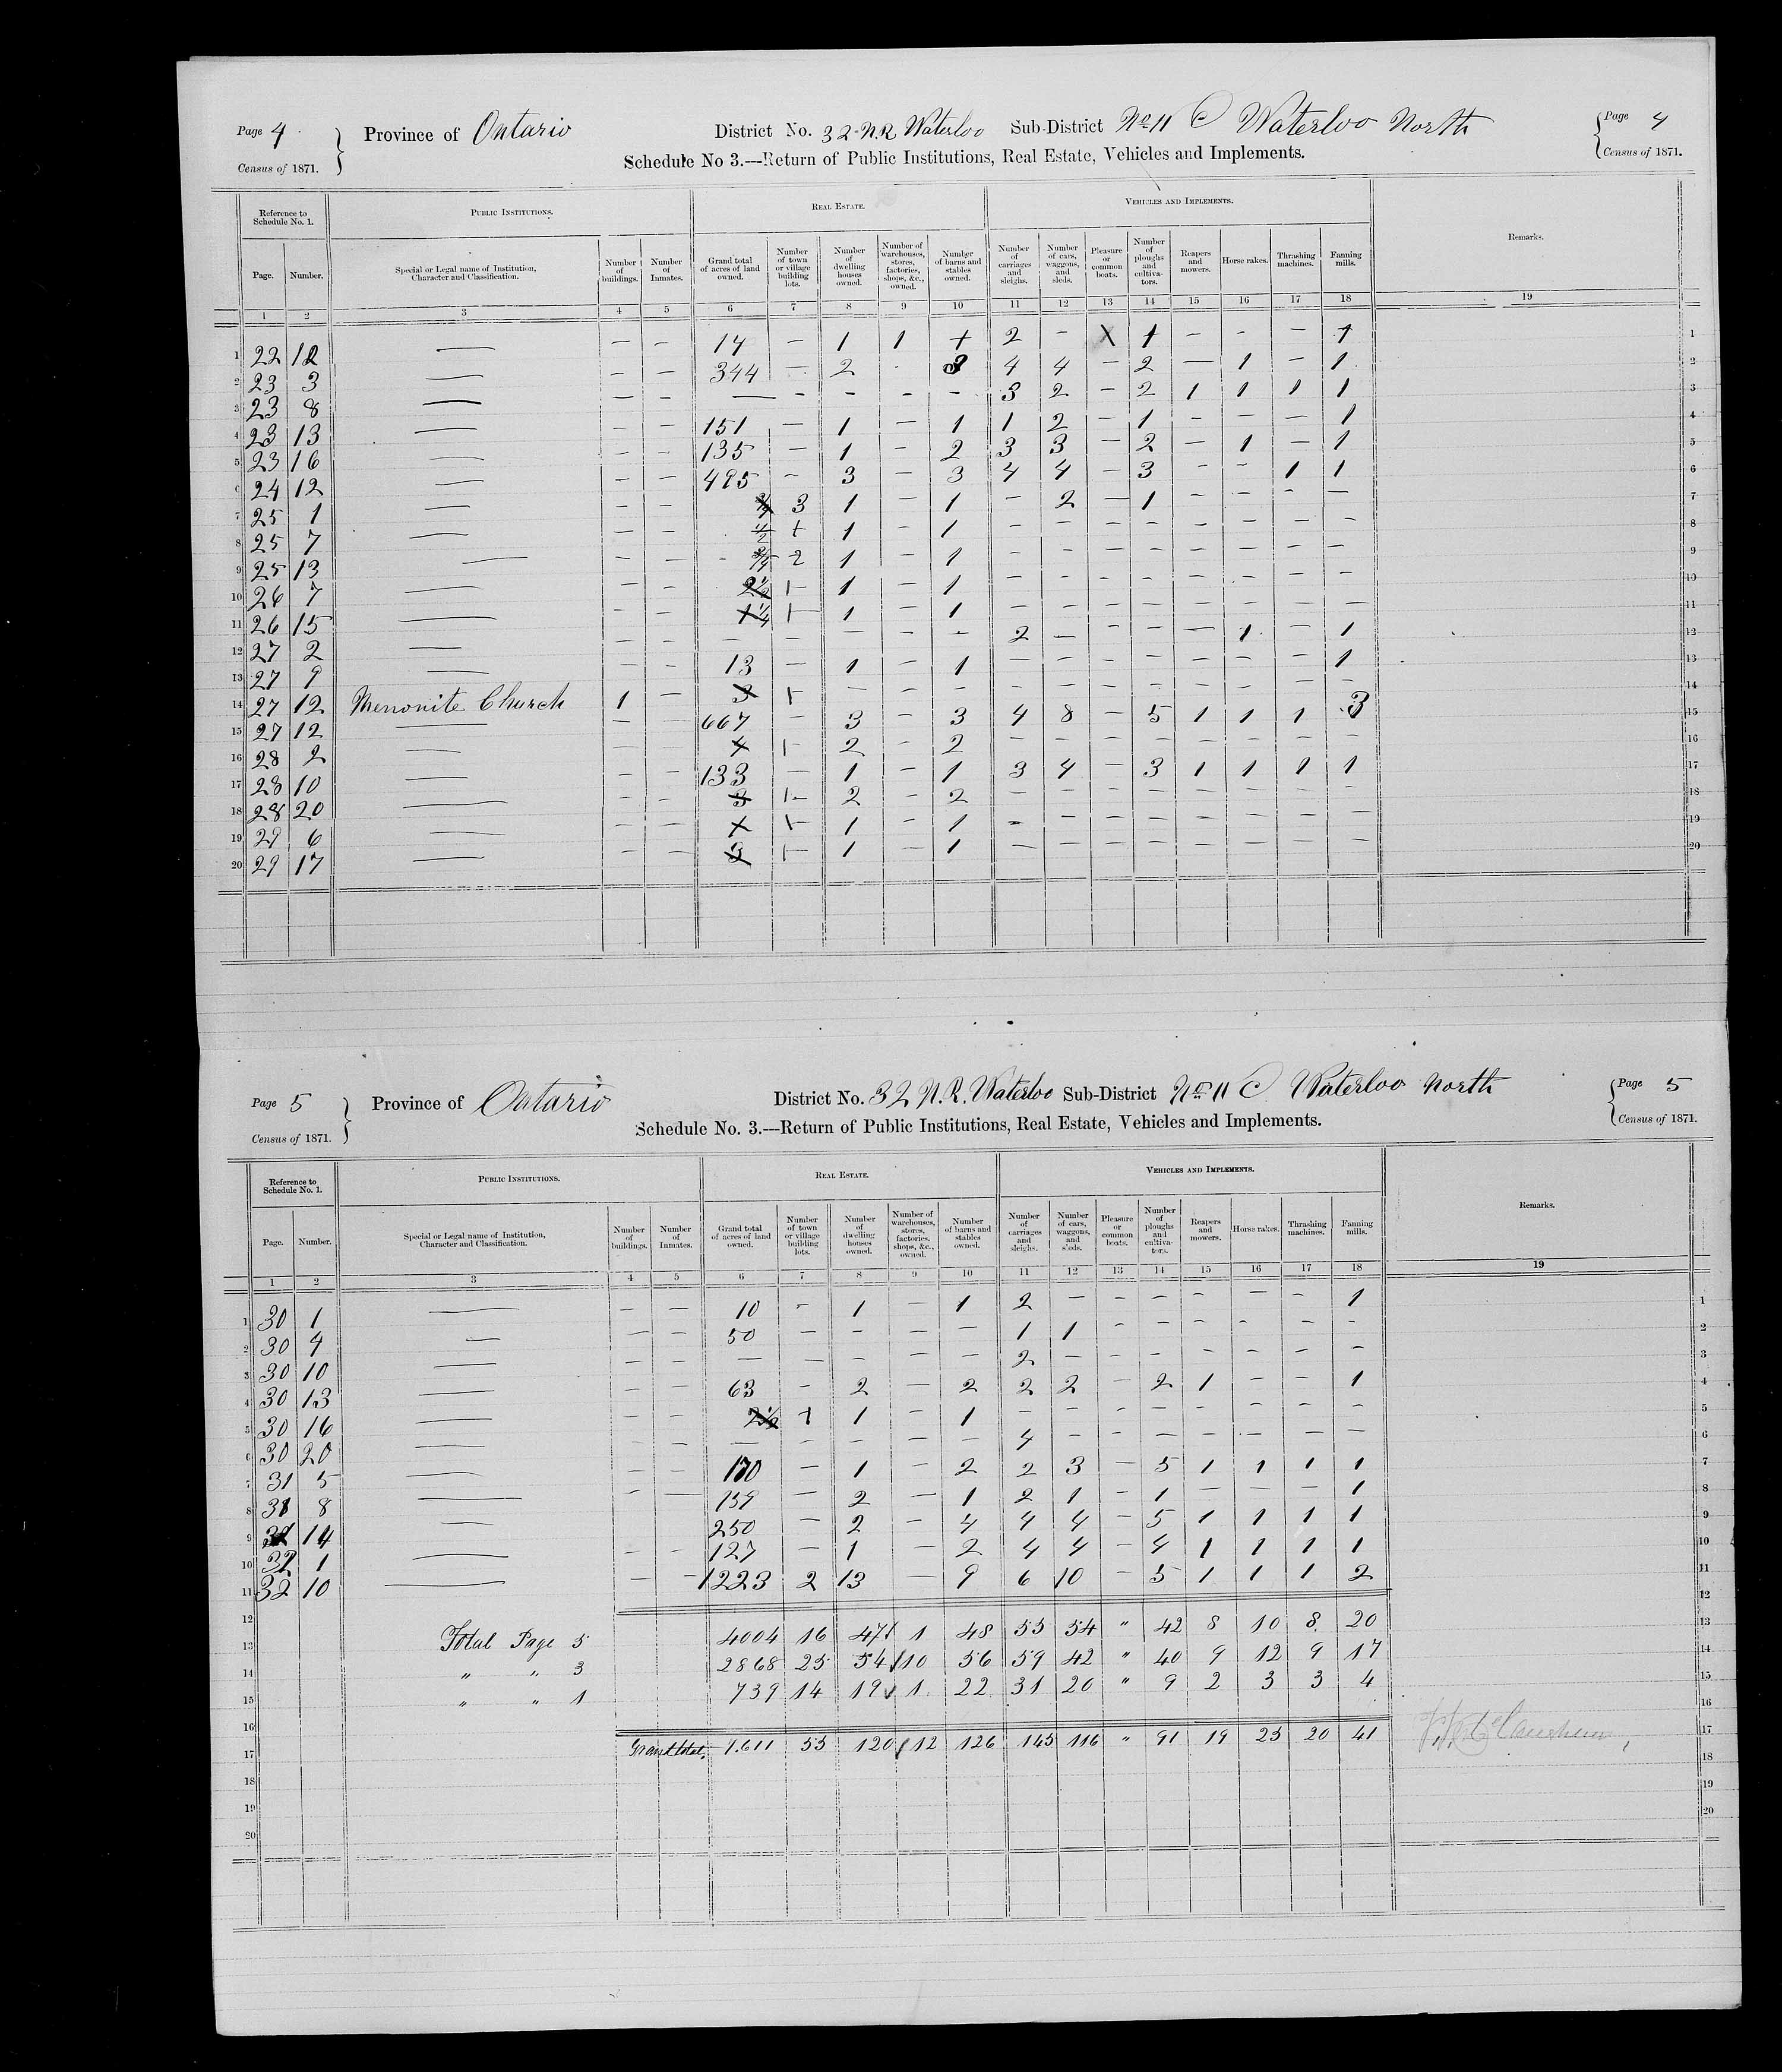 Page 4 Province of Ontario District No. 32 N.R Waterloo Sub-District No 11 C Waterloo North Page 4
Census of 1871. Schedule No 3.—Return of Public Institutions, Real Estate, Vehicles and Implements. Census of 1871.
Reference to Schedule No. 1. PUBLIC INSTITUTIONS. REAL ESTATE. VEHICLES AND IMPLEMENTS. Remarks.
Page. Number. Special or Legal name of Institution, Character and Classification. Number of buildings. Number of Inmates. Grand total of acres of land owned. Number of town or village building lots. Number of dwelling houses owned. Number of warehouses, stores, factories, shops, &c., owned. Number of barns and stables owned. Number of carriages and sleighs. Number of cars, waggons, and sleds. Pleasure or common boats. Number of ploughs and cultivators. Reapers and mowers. Horse rakes. Thrashing machines. Fanning mills.
1 2 3 4 5 6 7 8 9 10 11 12 13 14 15 16 17 18 19
1 22 12 — — — 14 — 1 1 + 2 — X 1 — — — 1 1
2 23 3 — — — 344 — 2 3 4 4 — 2 — 1 — 1 2
3 23 8 — — — — — — — — 3 2 — 2 1 1 1 1 3
4 23 13 — — — 151 — 1 — 1 1 2 — 1 — — — 1 4
5 23 16 — — — 135 — 1 — 2 3 3 — 2 — 1 — 1 5
6 24 12 — — — 495 — 3 — 3 4 4 — 3 — — 1 1 6
7 25 1 — — — 3 1 — 1 — 2 — 1 — — — — 7
8 25 7 — — — 1/2 + 1 — 1 — — — — — — — — 8
9 25 13 — — — 2 1 — 1 — — — — — — — — 9
10 26 7 — — — 2½ 1 1 — 1 — — — — — — — — 10
11 26 15 — — — 1¼ 1 1 — 1 — — — — — — — — 11
12 27 2 — — — — — — — — 2 — — — — 1 — 1 12
13 27 9 — — — 13 — 1 — 1 — — — — — — — 1 13
14 27 12 Mennonite Church 1 — 3 1 — — — — — — — — — — — 14
15 27 12 — — — 667 — 3 — 3 4 8 — 5 1 1 1 3 15
16 28 2 — — — 1 2 — 2 — — — — — — — — 16
17 28 10 — — — 133 — 1 — 1 3 4 — 3 1 1 1 1 17
18 28 20 — — — 3 1 2 — 2 — — — — — — — — 18
19 29 6 — — — 1 1 — 1 — — — — — — — — 19
20 29 17 — — — 3 1 1 — 1 — — — — — — — — 20
Page 5 Province of Ontario District No. 32 N.R. Waterloo Sub-District No 11 C Waterloo North Page 5
Census of 1871. Schedule No. 3.—Return of Public Institutions, Real Estate, Vehicles and Implements. Census of 1871.
Reference to Schedule No. 1. PUBLIC INSTITUTIONS. REAL ESTATE. VEHICLES AND IMPLEMENTS. Remarks.
Page. Number. Special or Legal name of Institution, Character and Classification. Number of buildings. Number of Inmates. Grand total of acres of land owned. Number of town or village building lots. Number of dwelling houses owned. Number of warehouses, stores, factories, shops, &c., owned. Number of barns and stables owned. Number of carriages and sleighs. Number of cars, waggons, and sleds. Pleasure or common boats. Number of ploughs and cultivators. Reapers and mowers. Horse rakes. Thrashing machines. Fanning mills.
1 2 3 4 5 6 7 8 9 10 11 12 13 14 15 16 17 18 19
1 30 1 — — — 10 — 1 — 1 2 — — — — — — 1 1
2 30 4 — — — 50 — — — — 1 1 — — — — — — 2
3 30 10 — — — — — — — — 2 — — — — — — — 3
4 30 13 — — — 63 — 2 — 2 2 2 — 2 1 — — 1 4
5 30 16 — — — 2½ 1 1 — 1 — — — — — — — — 5
6 30 20 — — — — — — — — 4 — — — — — — — 6
7 31 5 — — — 170 — 1 — 2 2 3 — 5 1 1 1 1 7
8 31 8 — — — 159 — 2 — 1 2 1 — 1 — — — 1 8
9 14 — 250 — 2 — 4 4 4 — 5 1 1 1 1 9
10 32 1 — — — 127 — 1 — 2 4 4 — 4 1 1 1 1 10
11 32 10 — — — 1223 2 13 — 9 6 10 — 5 1 1 1 2 11
12 12
13 Total Page 5 4004 16 47 1 48 55 54 " 42 8 10 8 20 13
14 " " 3 2868 25 54 10 56 59 42 " 40 9 12 9 17 14
15 " " 1 739 14 19 1 22 31 20 " 9 2 3 3 4 15
16 16
17 Grand total, 7.611 55 120 12 126 145 116 " 91 19 25 20 41 17
18 18
19 19
20 20